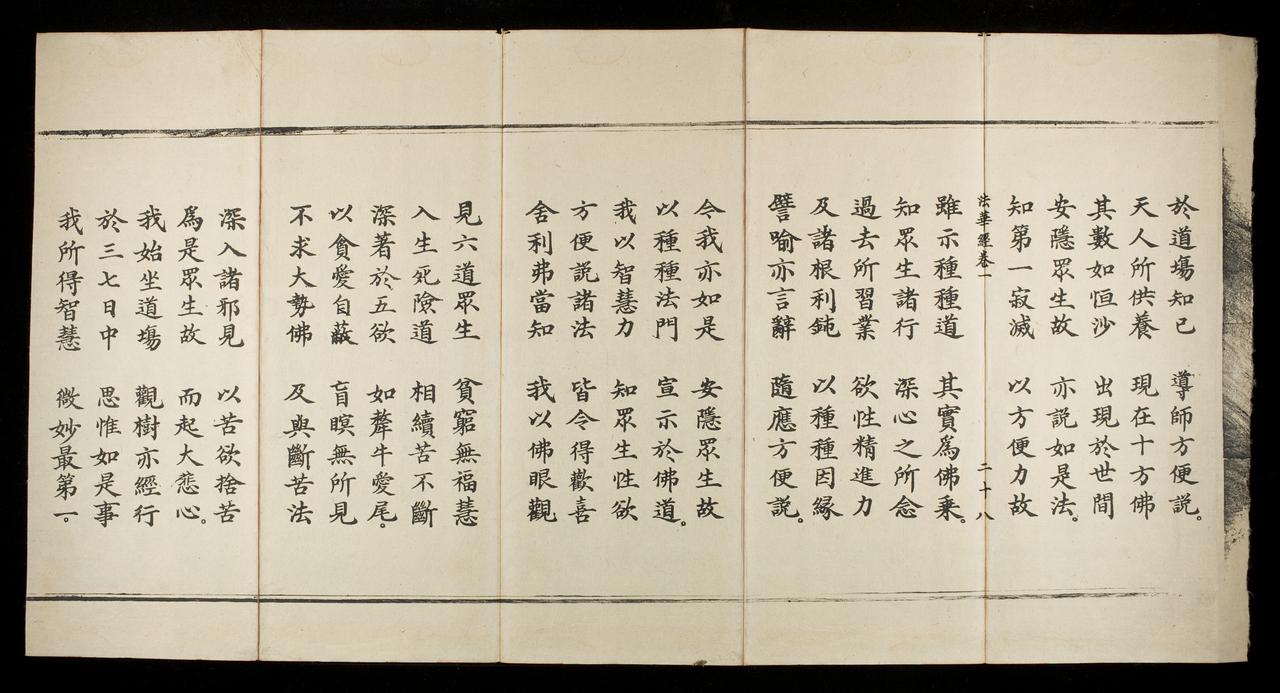 於道場知已 導師方便説。
天人所供養 現在十方佛
其數如恒沙 出現於世間
安隱眾生故 亦説如是法。
知第一寂滅 以方便力故
法華經卷一 二十八
雖示種種道 其實為佛乘。
知眾生諸行 深心之所念
過去所習業 欲性精進力
及諸根利鈍 以種種因緣
譬喻亦言辭 隨應方便説。
今我亦如是 安隱眾生故
以種種法門 宣示於佛道。
我以智慧力 知眾生性欲
方便説諸法 皆令得歡喜
舍利弗當知 我以佛眼觀
見六道眾生 貧窮無福慧
入生死險道 相續苦不斷
深著於五欲 如犛牛愛尾。
以貪愛自蔽 盲瞑無所見
不求大勢佛 及與斷苦法
深入諸邪見 以苦欲捨苦
為是眾生故 而起大悲心。
我始坐道場 觀樹亦經行
於三七日中 思惟如是事
我所得智慧 微妙最第一。